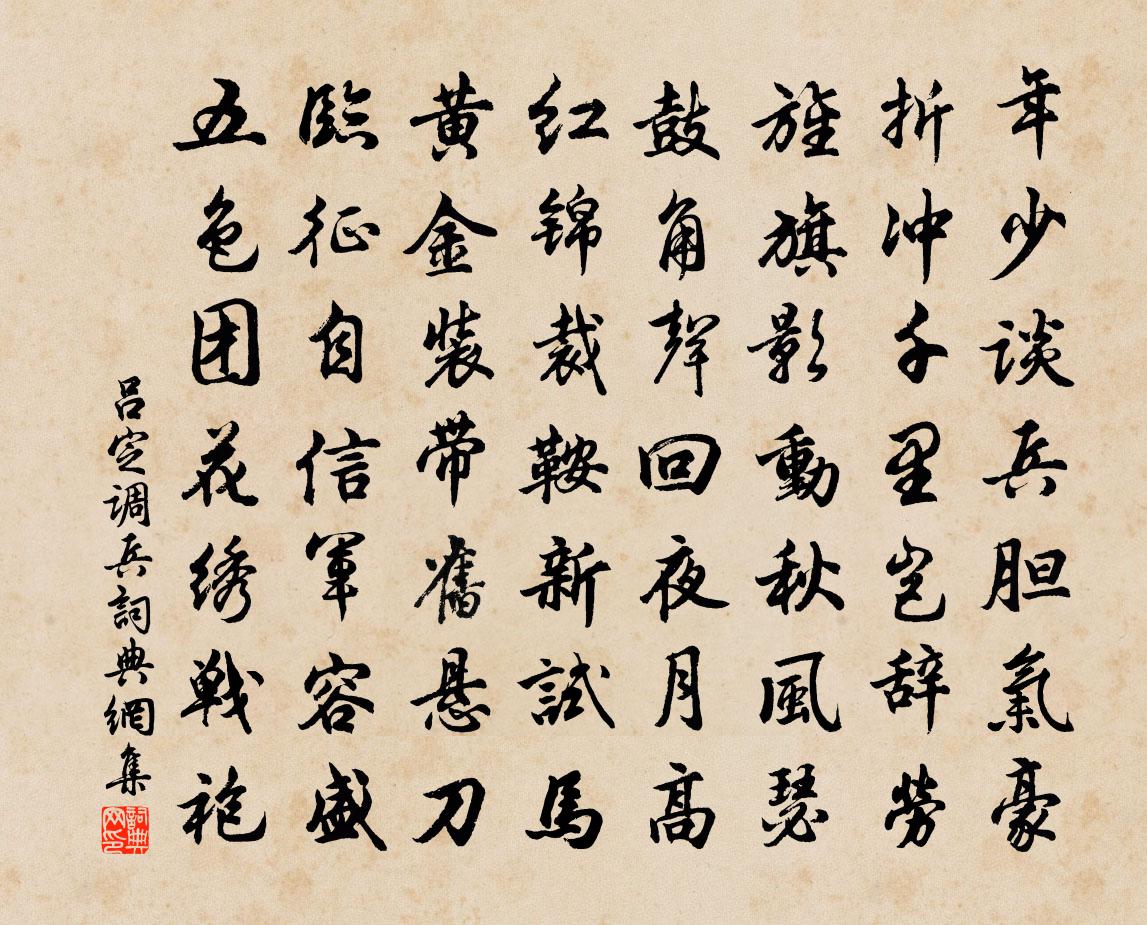 年少谈兵胆氣豪
折冲千里岂辞勞
旌旗影動秋風瑟
鼓角聲回夜月高
红锦裁鞍新試馬
黄金装带舊悬刀
臨征自信軍容盛
五色团花绣戦袍
吕定调兵詞典網集
詞典网印